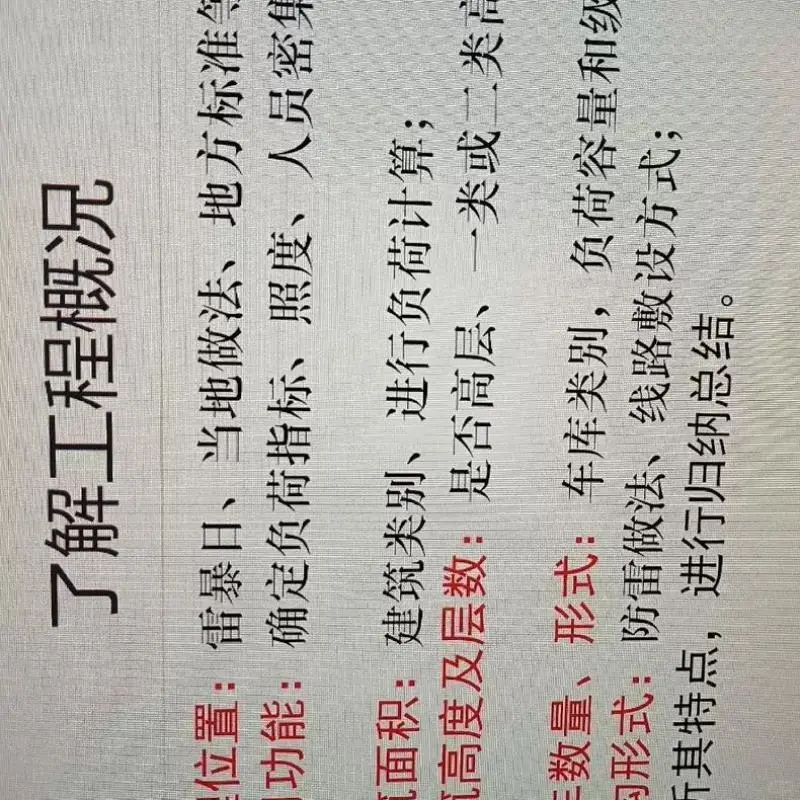 了解工程概况
位置：雷暴日、当地做法、地方标准等
功能：确定负荷指标、照度、人员密集
面积：建筑类别、进行负荷计算；
高度及层数：是否高层、一类或二类高
数量、形式：车库类别，负荷容量和级
形式：防雷做法、线路敷设方式；
其特点，进行归纳总结。